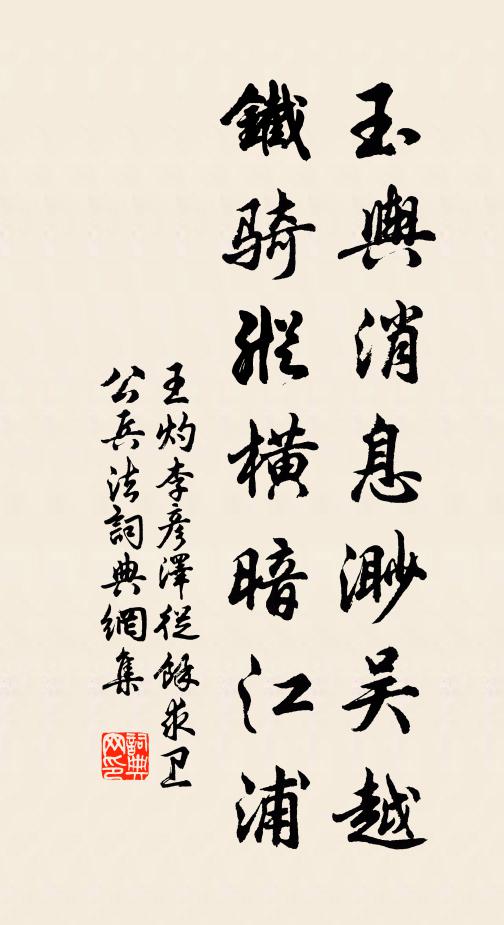 玉輿消息渺吳越
鐵騎縱橫暗江浦
王灼李彥澤從餘求卫
公兵法詞典網集
詞典网印